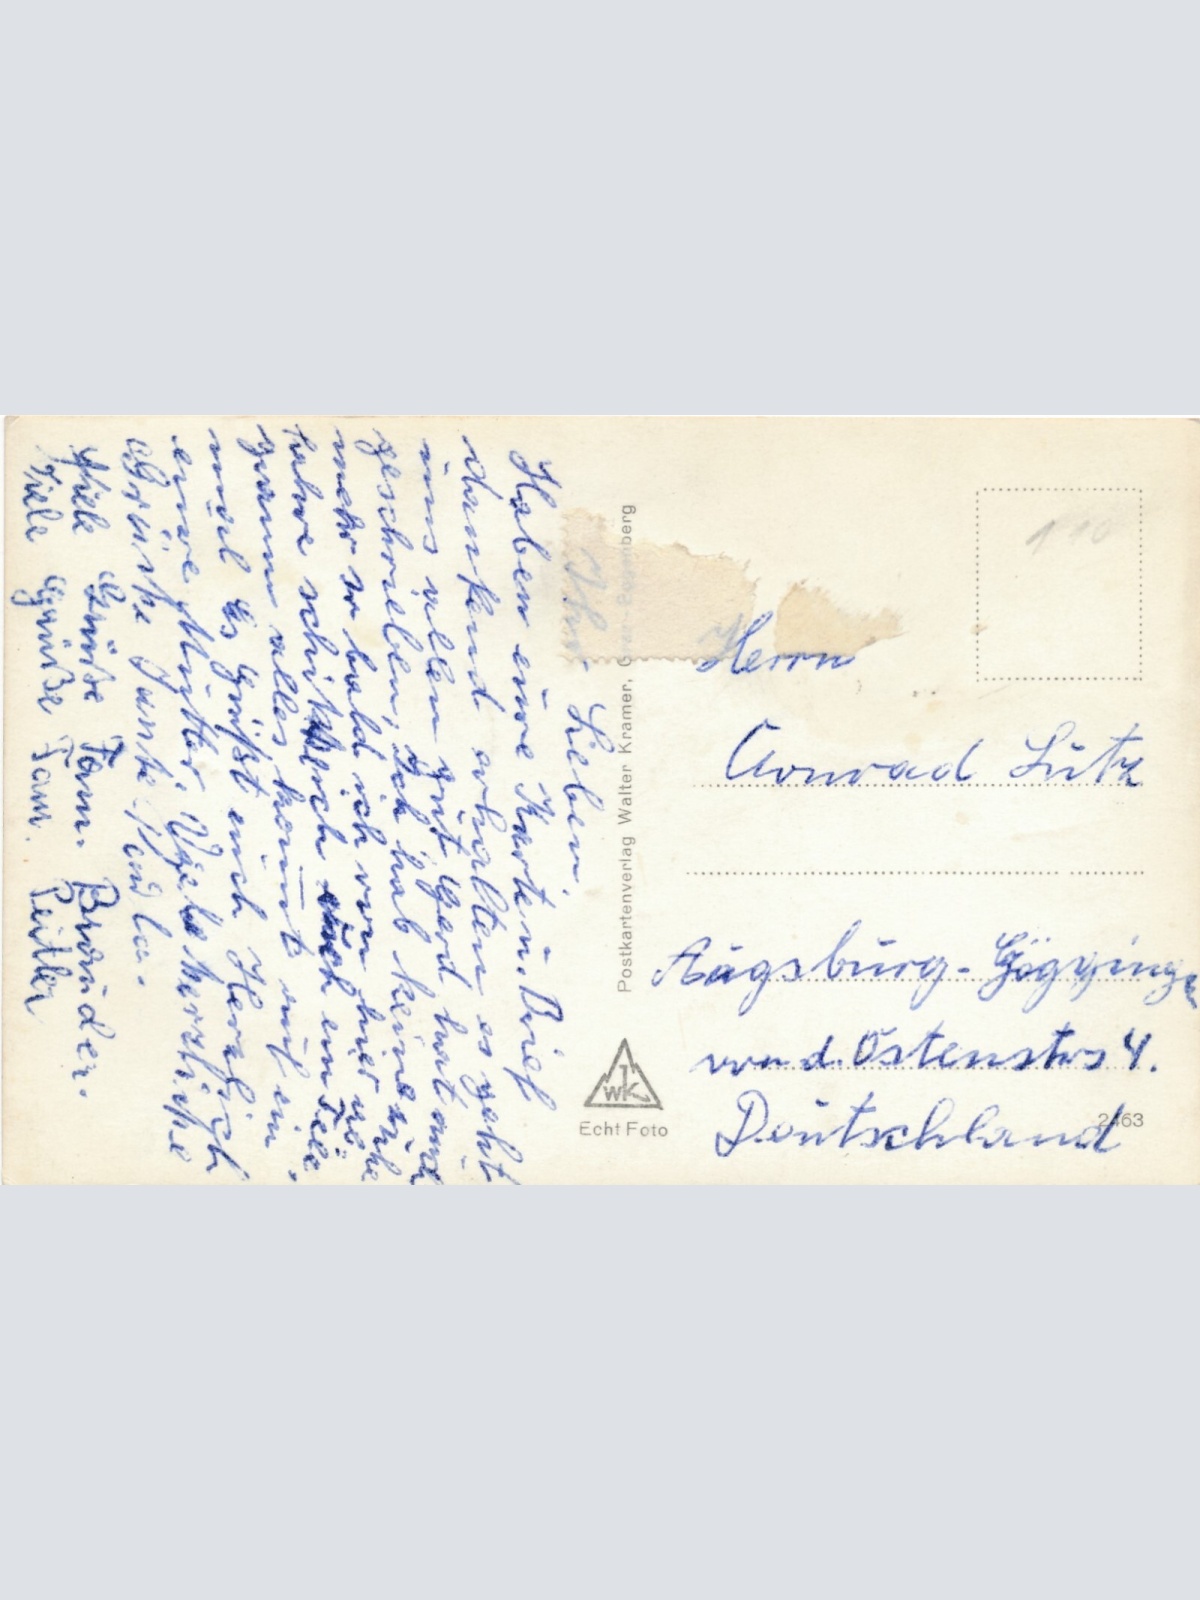 Ihr Lieben.
Haben eure Karte u. Brief
dankend erhalten es geht
uns allen gut Gerd hat auch
geschrieben, Ich hab keine ruh
mehr so bald ich von hier nähe
habe schick ich euch ein Tele
gramm alles kommt auf ein
mal Es Grüßt euch Herzlich
eure Mutter, Viele herzliche
Grüße Tante Paula.
Viele Grüße Fam. Bruder.
Viele Grüße Fam. Peitler
Postkartenverlag Walter Kramer, Graz-Eggenberg
WK
Echt Foto
110
Herrn
Conrad Lutz
Augsburg-Göggingen
von d. Ostenstrs 4.
Deutschland
2463